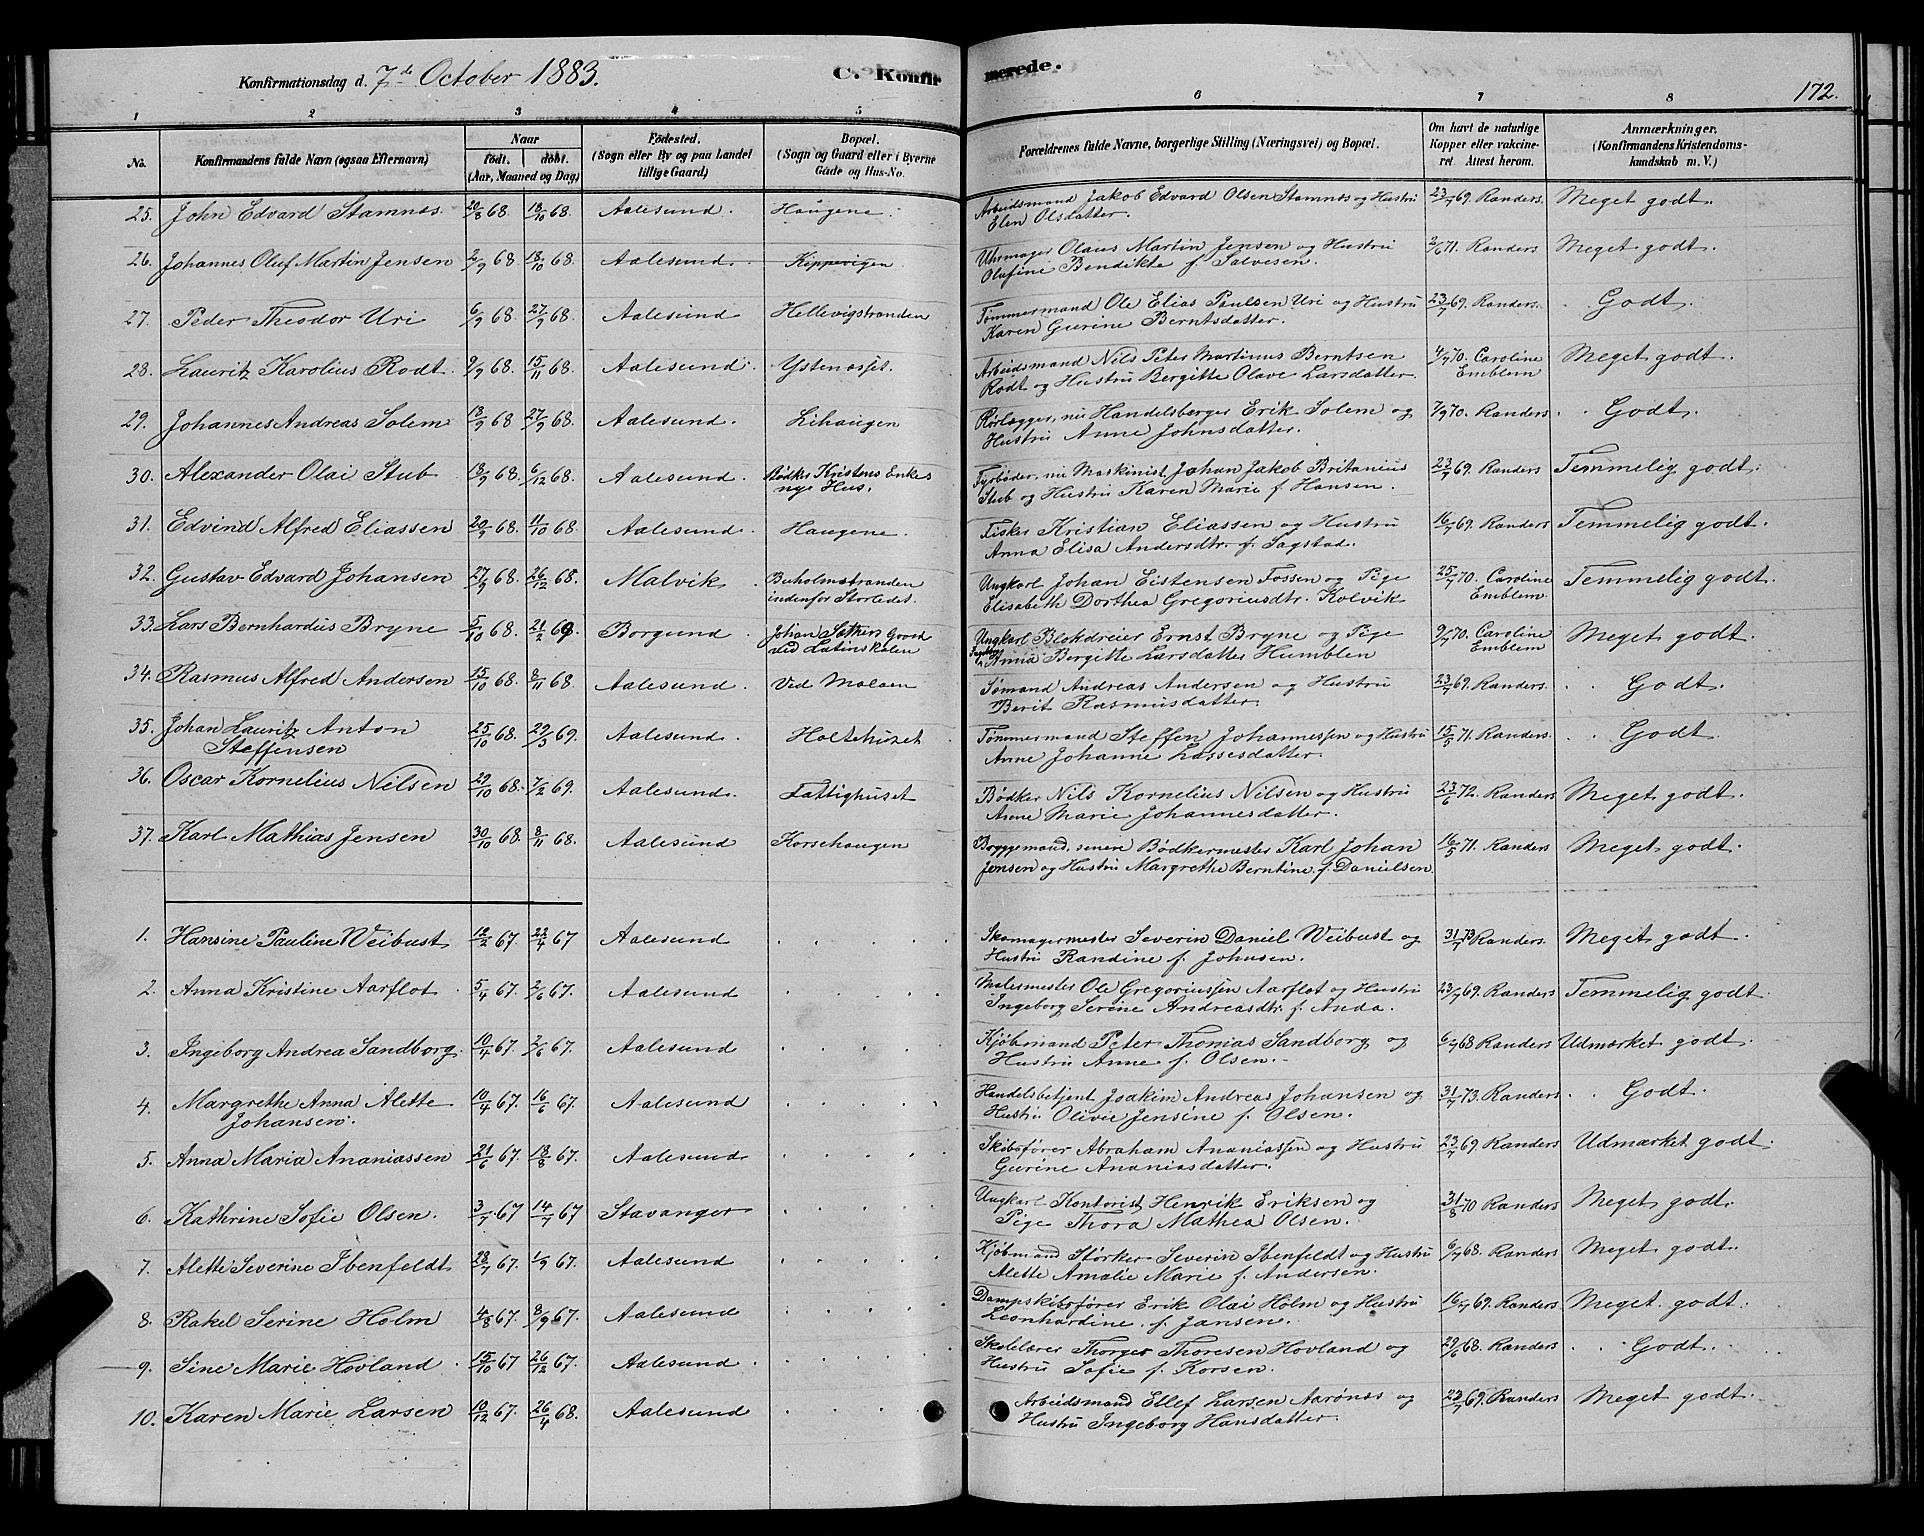 Konfirmationsdag d. 7de October 1883. C. Konfirmerede. 172.
1 2 3 4 5 6 7 8
No. Konfirmandens fulde Navn (ogsaa Efternavn) Naar født. døbt. (Aar, Maaned og Dag) Fødested. (Sogn eller By og paa Landet lillige Gaard) Bopæl. (Sogn og Gaard eller i Byerne Gade og Hus-No. Forældrenes fulde Navne, borgerlige Stilling (Næringsvei) og Bopæl. Om havt de naturlige Kopper eller vaccineret. Attest herom. Anmærkninger. (Konfirmandens Kristendomskundskab m. V.)
25. John Edvard Stamnes 20/8 68. 18/10 68. Aalesund. Haugene. Arbeidsmand Jakob Edvard Olsen Stamnes og Hustru 23/7 69. Randers. Meget godt.
Elen Olsdatter.
26. Johannes Oluf Martin Jensen 2/9 68 18/10 68. Aalesund. Kippevigen Uhrmager Olaus Martin Jensen og Hustru 2/6 71. Randers Meget godt.
Olufine Bendikte f. Salvesen.
27. Peder Theodor Uri 6/9 68. 27/9 68. Aalesund Hellevigstranden Tømmermand Ole Elias Paulsen Uri og Hustru 23/7 69. Randers. Godt.
Karen Gurine Berntsdatter.
28. Lauritz Karolius Rodt 9/9 68. 15/11 68. Aalesund Ystenæsset. Arbeidsmand Nils Peter Martinus Berntsen 4/7 70. Caroline Emblem Meget godt.
Rødt og Hustru Bergitte Olave Larsdatter
29. Johannes Andreas Solem 13/9 68 27/9 68. Aalesund. Lihaugen Rørlægger, nu Handelsberger Erik Solem og 7/9 70. Randers. Godt.
Hustru Anne Johnsdatter.
30. Alexander Olai Stub 13/9 68. 6/12 68. Aalesund. Bødker Kristens Enkes nye Hus. Fyrbøder, nu Maskinist Johan Jakob Britanius 23/7 69. Randers Temmelig godt.
Stub og Hustru Karen Marie f. Hansen.
31. Edvind Alfred Eliassen 20/9 68. 11/10 68. Aalesund. Haugene. Fisker Kristian Eliassen og Hustru 16/7 69. Randers Temmelig godt.
Anna Elisa Andersdtr. f. Sagstad.
32. Gustav Edvard Johansen 27/9 68. 26/12 68. Malvik. Buholmstranden indenfor Storledet. Ungkarl Johan Eistensen Fossen og Pige 25/7 70. Caroline Emblem Temmelig godt.
Elisabeth Dorthea Gregoriusdtr. Kolvik
33. Lars Bernhardus Bryne 5/10 68. 21/2 69. Borgund. Johan Sathers Gaard ved Latinskolen Ungkarl Blokdreier Ernst Bryne og Pige 9/7 70. Caroline Emblem Meget godt.
Anna Bergitte Larsdatter Humblen
34. Rasmus Alfred Andersen 15/10 68. 8/11 68. Aalesund. Ved Moloen Sømand Andreas Andersen og Hustru 23/7 69. Randers. Godt.
Berit Rasmusdatter.
35. Johan Lauritz Anton Steffensen 25/10 68. 29/3 69. Aalesund. Holtehuset Tømmermand Steffen Johannessen og Hustru 15/5 71. Randers. Godt.
Anne Johanne Lassesdatter.
36. Oscar Kornelius Nilsen 29/10 68. 7/2 69. Aalesund. Fattighuset Bødker Nils Kornelius Nilsen og Hustru 23/6 72. Randers Meget godt.
Anne Marie Johannesdatter.
37. Karl Mathias Jensen 30/10 68. 8/11 68. Aalesund Korsehaugen Bryggemand, senere Bødkermester Karl Johan 16/5 71. Randers Meget godt.
Jensen og Hustru Margrethe Berntine f. Danielsen.
1. Hansine Pauline Weibust 12/2 67. 22/4 67 Aalesund Skomagermester Severin Daniel Weibust og 31/7 73 Randers. Meget godt.
Hustru Randine f. Johnsen.
2. Anna Kristine Aarflot 5/4 67. 2/6 67. Aalesund Malermester Ole Gregoriussen Aarflot og Hustru 23/7 69. Randers Temmelig godt
Ingeborg Serine Andreasdtr. f. Anda.
3. Ingeborg Andrea Sandborg. 10/4 67. 2/6 67. Aalesund Kjøbmand Peter Thomas Sandborg og 6/7 68 Randers Udmærket godt.
Hustru Anne f. Olsen.
4. Margrethe Anna Alette Johansen. 10/4 67. 16/6 67. Aalesund Handelsbetjent Joakim Andreas Johansen og 31/7 73. Randers. Godt.
Hustru Olivie Jensine f. Olsen.
5. Anna Maria Ananiassen 21/6 67. 18/8 67. Aalesund Skibsfører Abraham Ananiassen og Hustru 23/7 69. Randers Udmærket godt.
Gurine Ananiasdatter.
6. Kathrine Sofie Olsen. 3/7 67 14/7 67 Stavanger Ungkarl Kontorist Henrik Eriksen og 31/8 70 Randers Meget godt.
Pige Thora Mathea Olsen.
7. Alette Severine Ibenfeldt 28/7 67. 1/9 67. Aalesund Kjøbmand Størker Severin Ibenfeldt og Hustru 6/7 68. Randers Meget godt.
Alette Amalie Marie f. Andersen.
8. Rakel Serine Holm 4/8 67. 8/9 67. Aalesund Dampskibsfører Erik Olai Holm og Hustru 16/7 69. Randers Meget godt.
Leonhardine f. Jansen.
9. Sine Marie Hovland 15/10 67 26/12 67. Aalesund Skolelærer Thorger Thoresen Hovland og 29/6 68. Randers Godt.
Hustru Sofie f. Korsen.
10. Karen Marie Larsen 10/12 67. 26/4 68. Aalesund Arbeidsmand Ellef Larsen Aarønes og 23/7 69. Randers Meget godt.
Hustru Ingeborg Hansdatter.